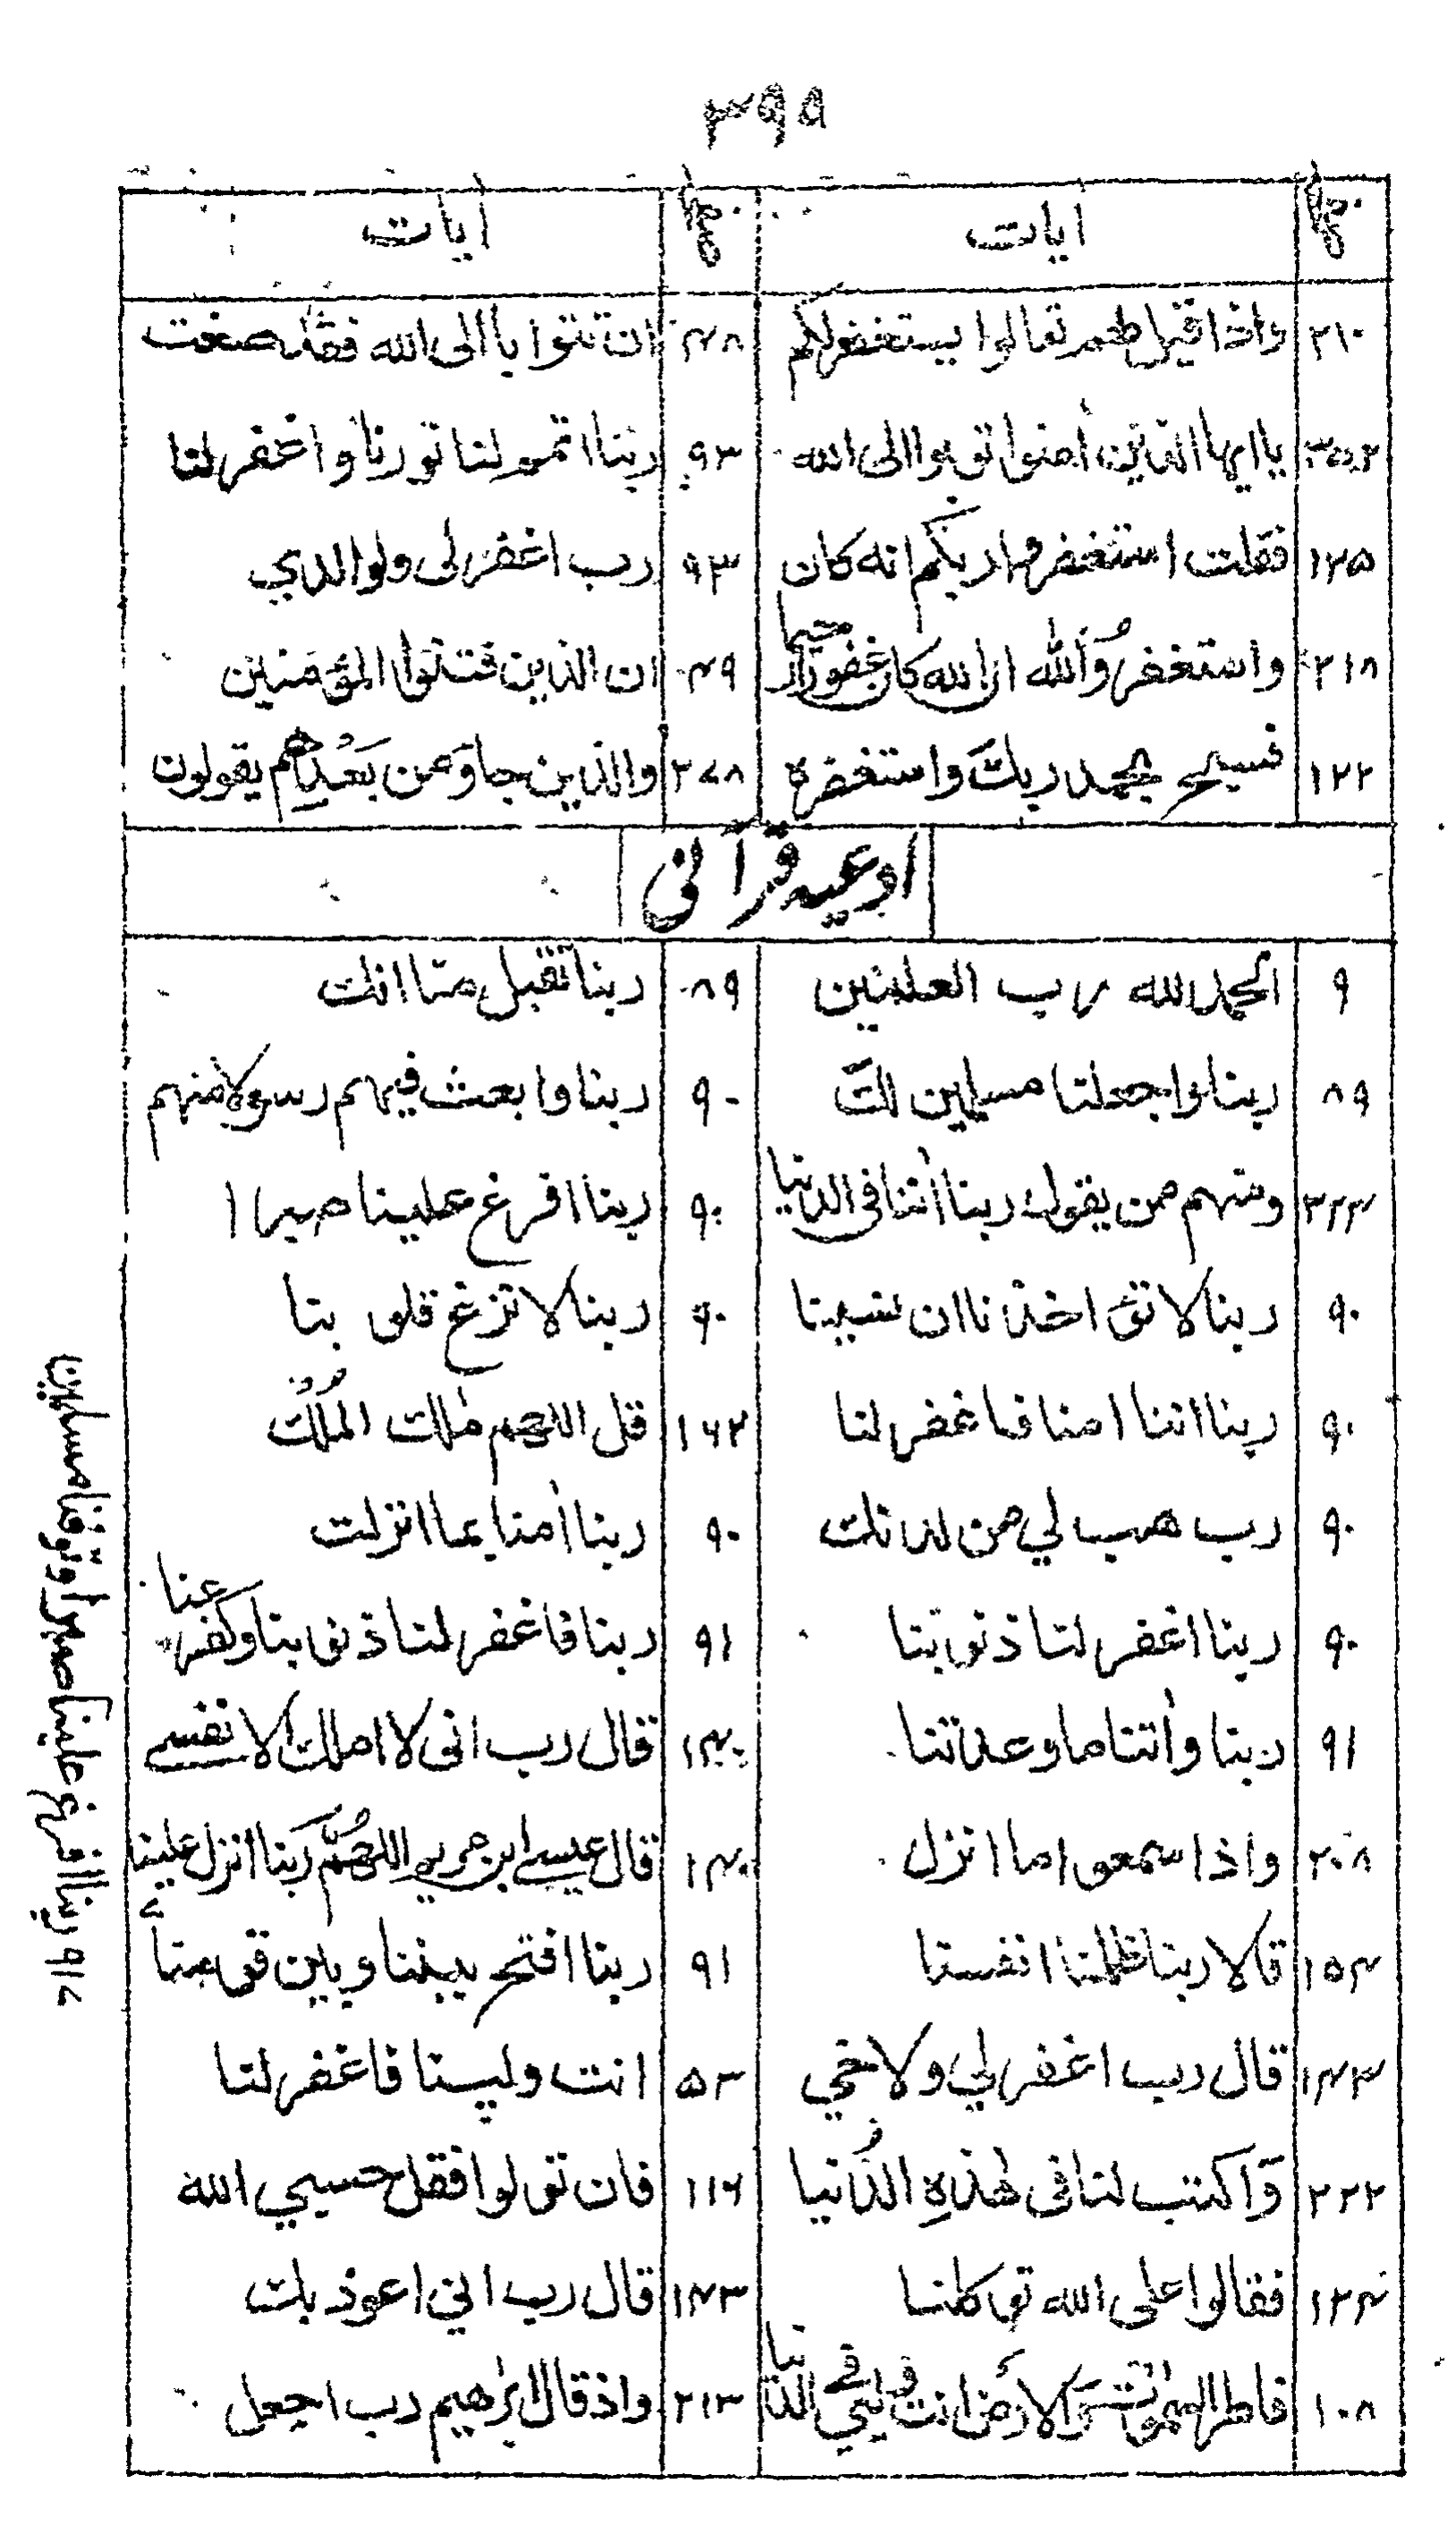 ۳۹۵
صفحہ ایات صفحہ ایات
۲۱۰ واذا قیل لهم تعالوا یستغفرلکم ۴۸ ان تتوبا الی الله فقد صغت
۳۵۲ یا ایها الذین اٰمنوا توبوا الی الله ۹۳ ربنا اتمم لنا نورنا واغفر لنا
۱۲۵ فقلت استغفروا ربکم انه کان ۹۳ رب اغفر لی ولوالدي
۲۱۸ واستغفرُوا الله ان الله کان غفورا رحیما ۴۹ ان الذین فتنوا المؤمنین
۱۲۲ فسبح بحمد ربك واستغفره ۲۷۸ والذین جاؤ من بَعْدِهم یقولون
ادعیہ قرآنی
۹ الحمد لله رب العلمین ۸۹ ربنا تقبل منا انك
۸۹ ربنا واجعلنا مسلمین لك ۹۰ ربنا وابعث فیهم رسولا منهم
۲۲۳ ومنهم من یقول ربنا اٰتنا فی الدنیا ۹۰ ربنا افرغ علینا صبرا
۹۰ ربنا لا تؤاخذنا ان نسینا ۹۰ ربنا لا تزغ قلوبنا
۹۰ ربنا اننا امنا فاغفر لنا ۱۶۲ قل اللهم مٰلك المُلْك
۹۰ رب هب لي من لدنك ۹۰ ربنا اٰمنا بما انزلت
۹۰ ربنا اغفر لنا ذنوبنا ۹۱ ربنا فاغفر لنا ذنوبنا وکفر عنا
۹۱ ربنا واٰتنا ما وعدتنا ۱۴۰ قال رب انی لا املك الا نفسے
۲۰۸ واذا سمعوا ما انزل ۱۴۰ قال عیسے ابن مریم اللهُمَّ رَبنا انزل علینا
۱۵۴ قالا ربنا ظلمنا انفسنا ۹۱ ربنا افتح بیننا وبین قومنا
۱۴۳ قال رب اغفر لي ولاخي ۵۳ انت ولینا فاغفر لنا
۲۲۲ وَاکتب لنا فی هٰذهِ الدُنیا ۱۱۶ فان تولوا فقل حسبي الله
۱۲۴ فقالوا علی الله توکلنا ۱۴۳ قال رب اني اعوذ بك
۱۰۸ فاطر السموات وَالارض انت ولیي فی الدنیا ۲۱۳ واذ قال ابرٰهیم رب اجعل
۹۱۷ ربنا افرغ علینا صبرا وتوفنا مسلمین